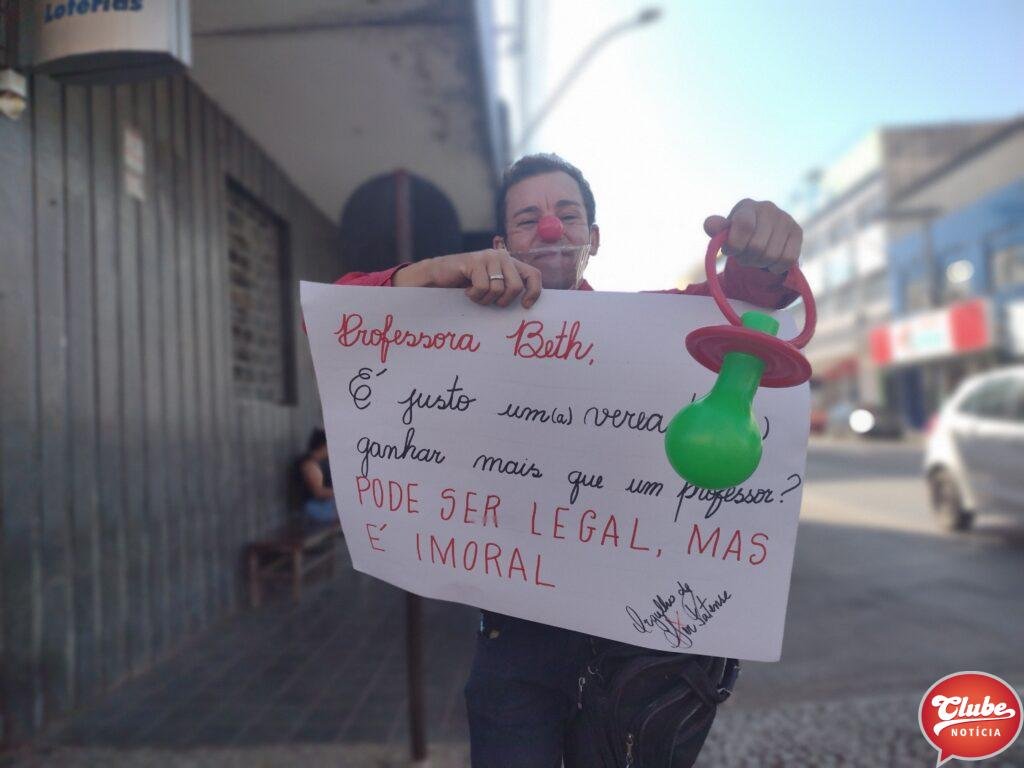 Loterias
Professora Beth,
É justo um(a) verea )
ganhar mais que um professor?
PODE SER LEGAL, MAS
É IMORAL
Orgulho de
Ser Patense
Clube
NOTÍCIA